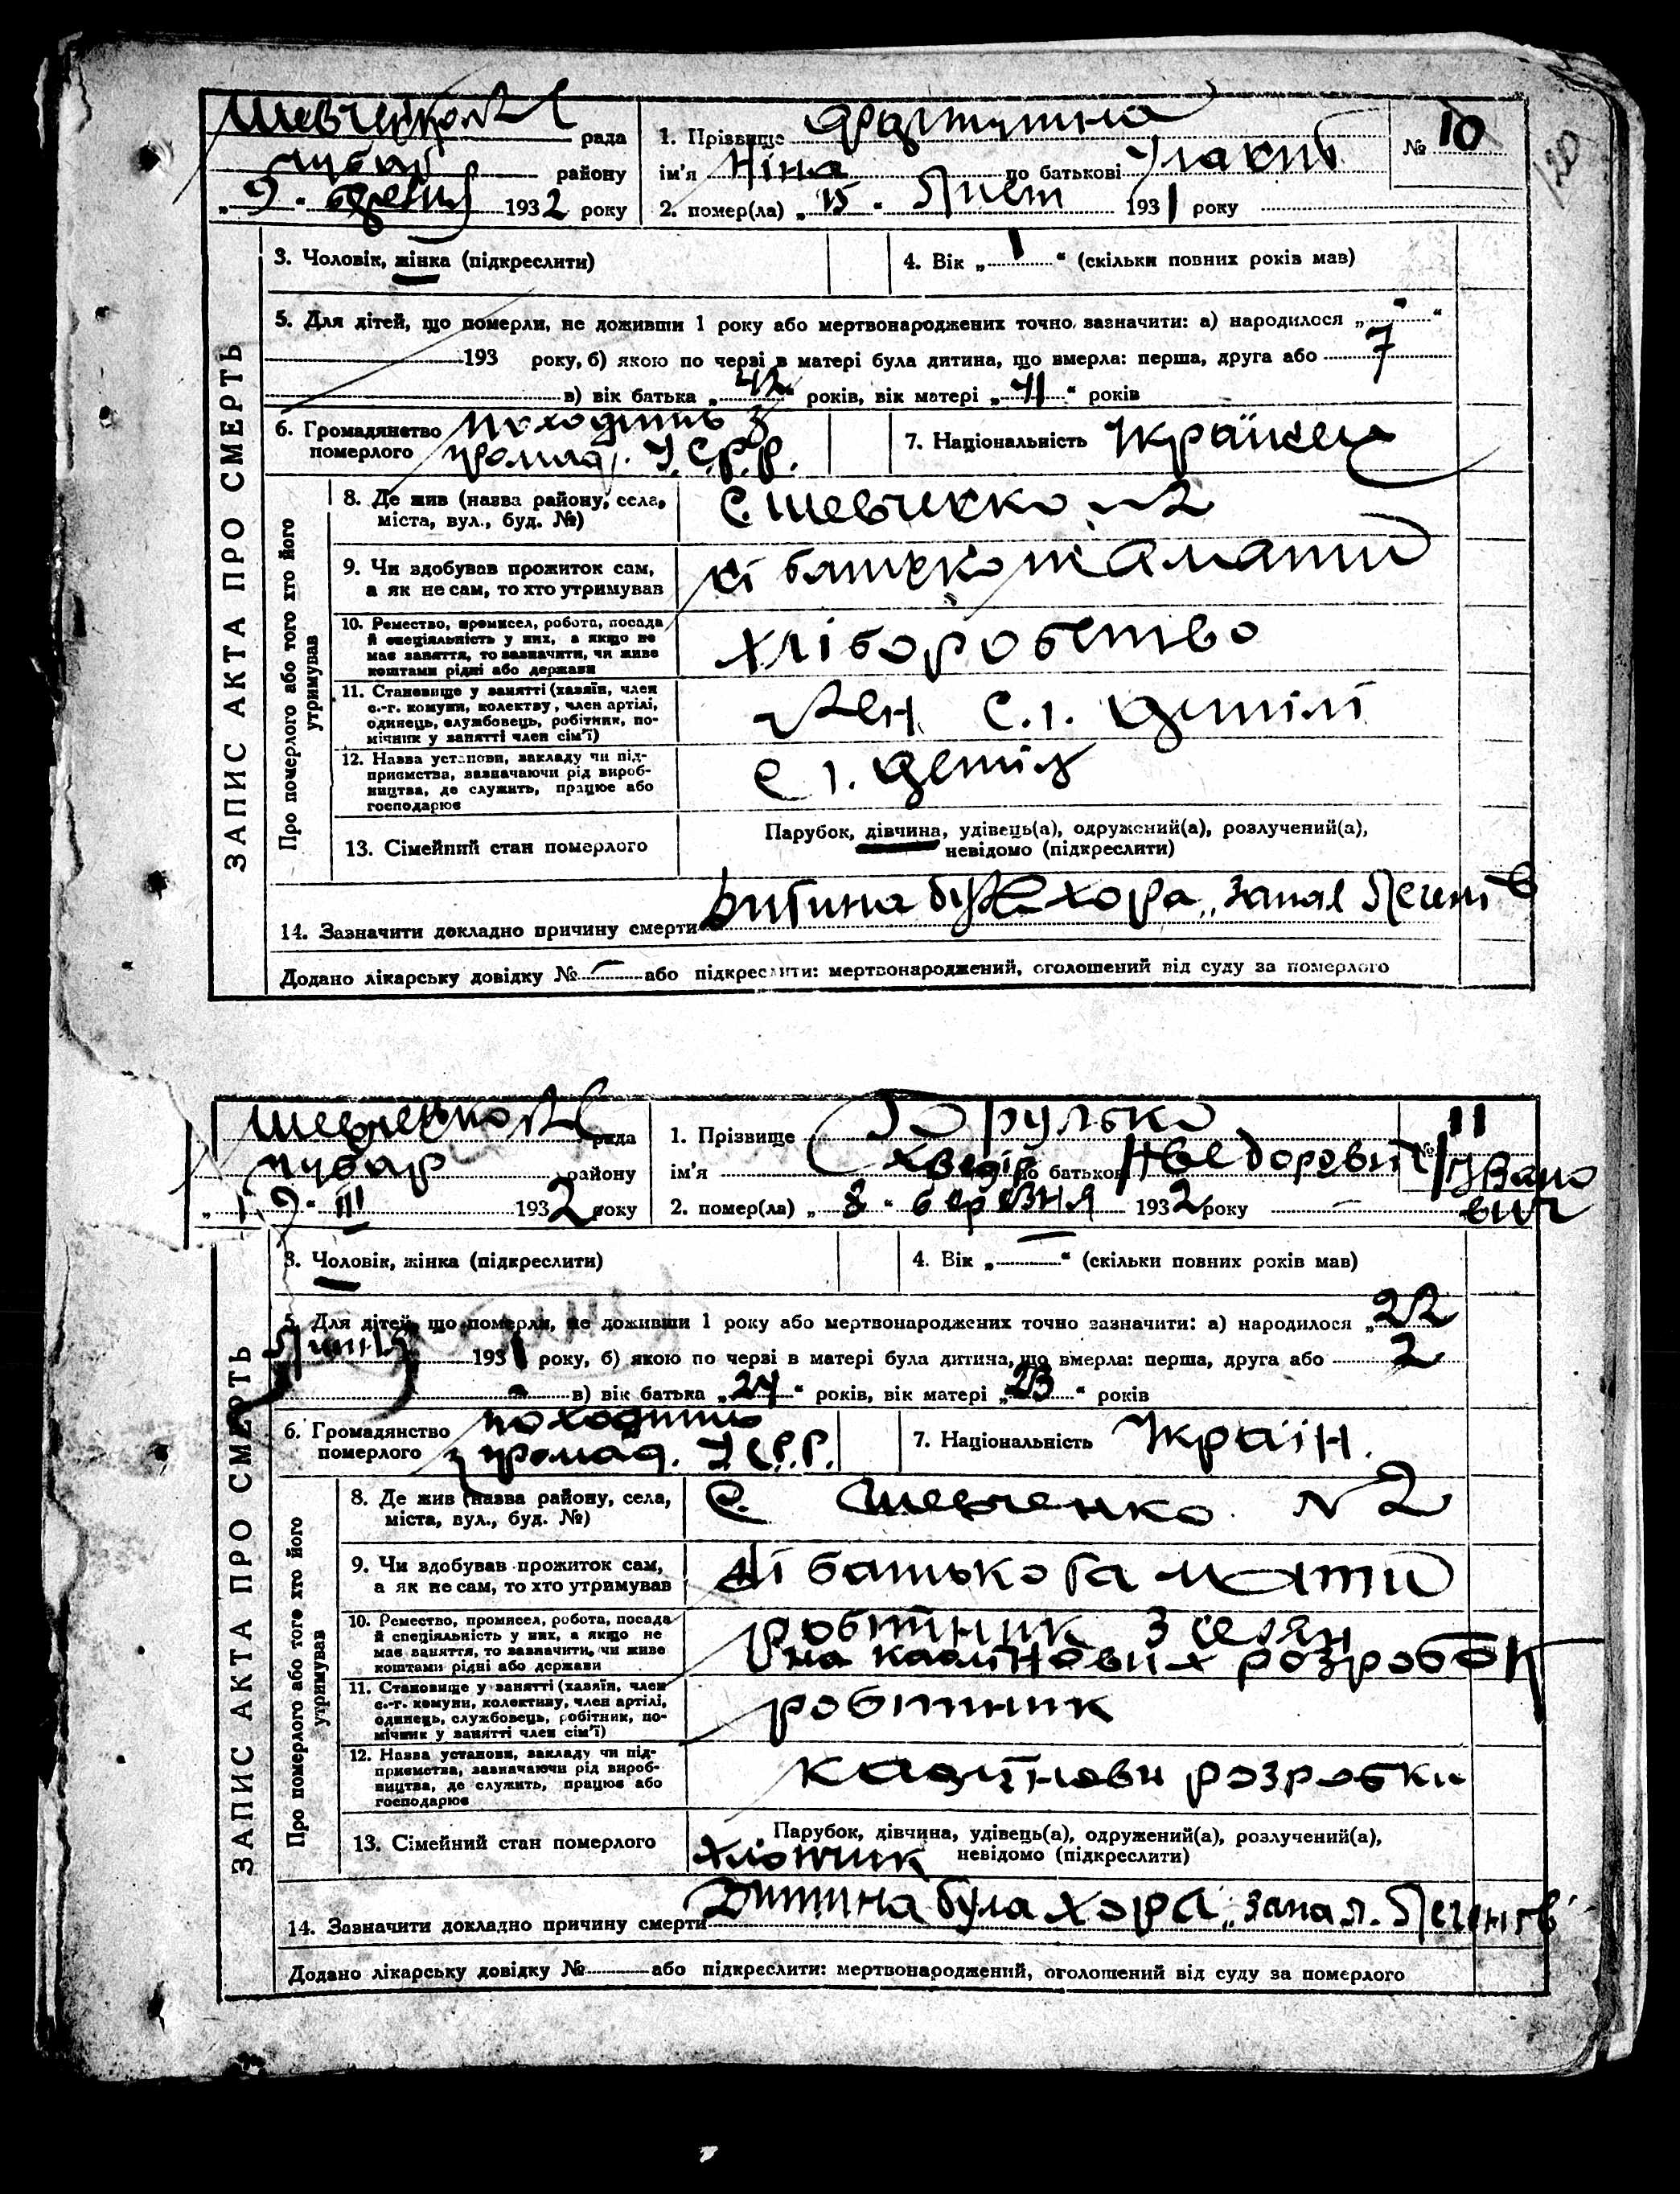 рада 1. Прізвище № 10
району ім'я Ніна по батькові
„9." 1932 року 2. помер(ла) „15" Лист 1931 року
ЗАПИС АКТА ПРО СМЕРТЬ
3. Чоловік, жінка (підкреслити) 4. Вік „1" (скільки повних років мав)
5. Для дітей, що померли, не доживши 1 року або мертвонароджених точно зазначити: а) народилося „ "
193 року, б) якою по черзі в матері була дитина, що вмерла: перша, друга або 7
в) вік батька „42" років, вік матері „41" років
6. Громадянство походить з
померлого громад. У.С.Р.Р. 7. Національність Українец
Про померлого або того хто його утримував
8. Де жив (назва району, села, С. Шевченко №2
міста, вул., буд. №)
9. Чи здобував прожиток сам, батько та мати
а як не сам, то хто утримував
10. Ремество, промисел, робота, посада хліборобство
й спеціяльність у них, а якщо не
має заняття, то зазначити, чи живе
коштами рідні або держави
11. Становище у занятті (хазяїн, член
с.-г. комуни, колектву, член артілі,
одинець, службовець, робітник, по-
мічник у занятті член сім'ї)
12. Назва установи, закладу чи під-
приємства, зазначаючи рід вироб-
ництва, де служить, працює або
господарює
13. Сімейний стан померлого Парубок, дівчина, удівець(а), одружений(а), розлучений(а),
невідомо (підкреслити)
14. Зазначити докладно причину смерти Дитина була хора „запал Легенів
Додано лікарську довідку № — або підкреслити: мертвонароджений, оголошений від суду за померлого
рада 1. Прізвище Брулько № 11
району ім'я Хведір по батькові Хведорович Іванович
„19." III 1932 року 2. помер(ла) „8" березня 1932 року
ЗАПИС АКТА ПРО СМЕРТЬ
3. Чоловік, жінка (підкреслити) 4. Вік „—" (скільки повних років мав)
5. Для дітей, що померли, не доживши 1 року або мертвонароджених точно зазначити: а) народилося „22
Липня 1931 року, б) якою по черзі в матері була дитина, що вмерла: перша, друга або 2
в) вік батька „24" років, вік матері „23" років
6. Громадянство походить
померлого з громад. У.С.Р.Р. 7. Національність Україін.
Про померлого або того хто його утримував
8. Де жив (назва району, села, С. Шевченко №2
міста, вул., буд. №)
9. Чи здобував прожиток сам, батько та мати
а як не сам, то хто утримував
10. Ремество, промисел, робота, посада робітник з селян
й спеціяльність у них, а якщо не на каолінових розробок
має заняття, то зазначити, чи живе
коштами рідні або держави
11. Становище у занятті (хазяїн, член робітник
с.-г. комуни, колективу, член артілі,
одинець, службовець, робітник, по-
мічник у занятті член сім'ї)
12. Назва установи, закладу чи під- каолінови розробки
приємства, зазначаючи рід вироб-
ництва, де служить, працює або
господарює
13. Сімейний стан померлого Парубок, дівчина, удівець(а), одружений(а), розлучений(а),
хлопчик невідомо (підкреслити)
14. Зазначити докладно причину смерти Дитина була хора „запал. Легенів
Додано лікарську довідку № або підкреслити: мертвонароджений, оголошений від суду за померлого